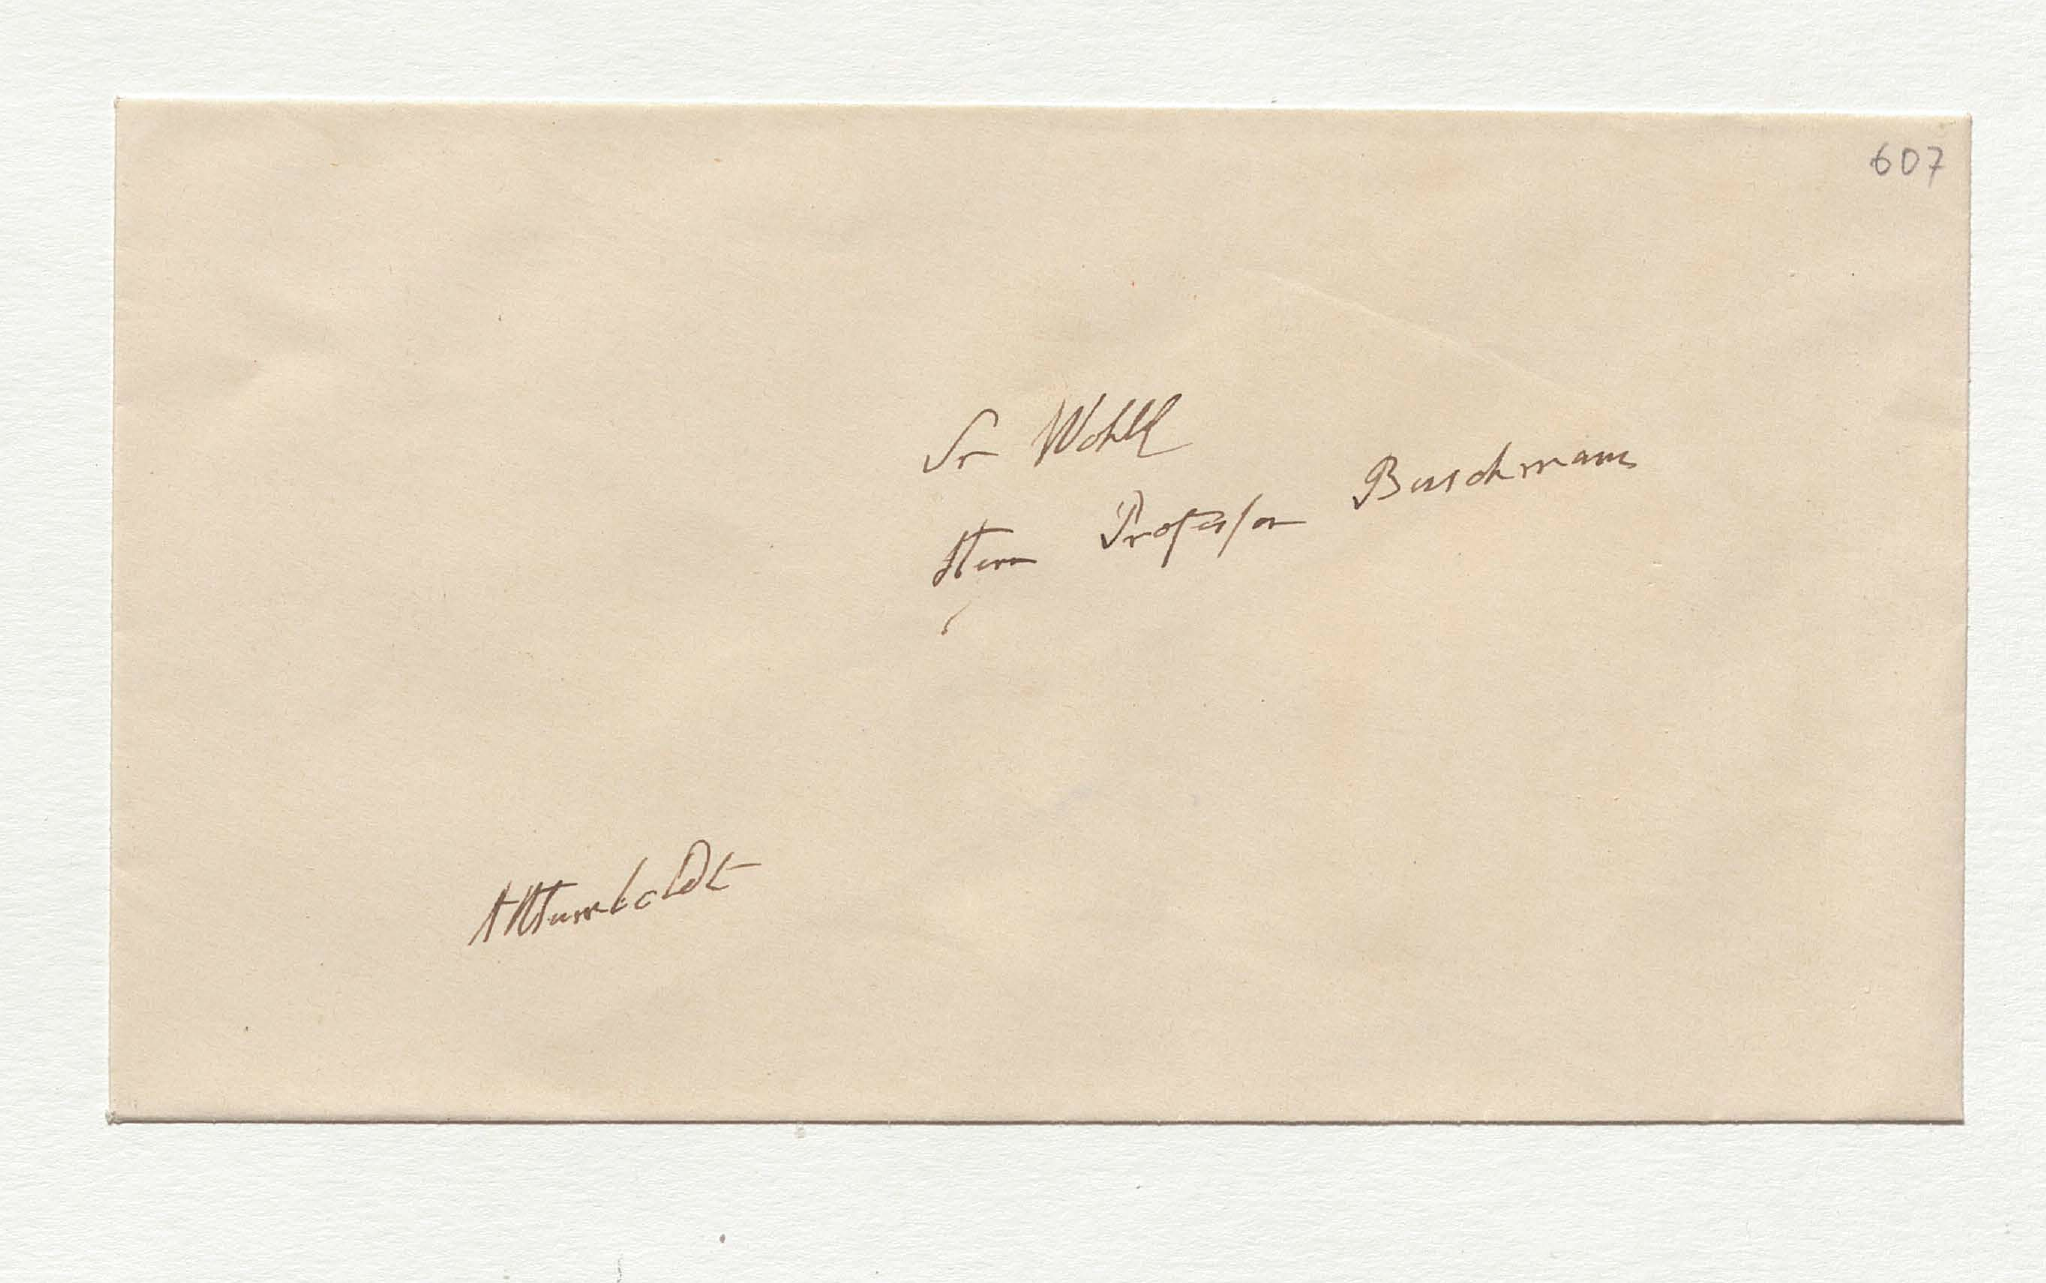 607
Sr Wohll
Herrn Professor Buschmann
AvHumboldt